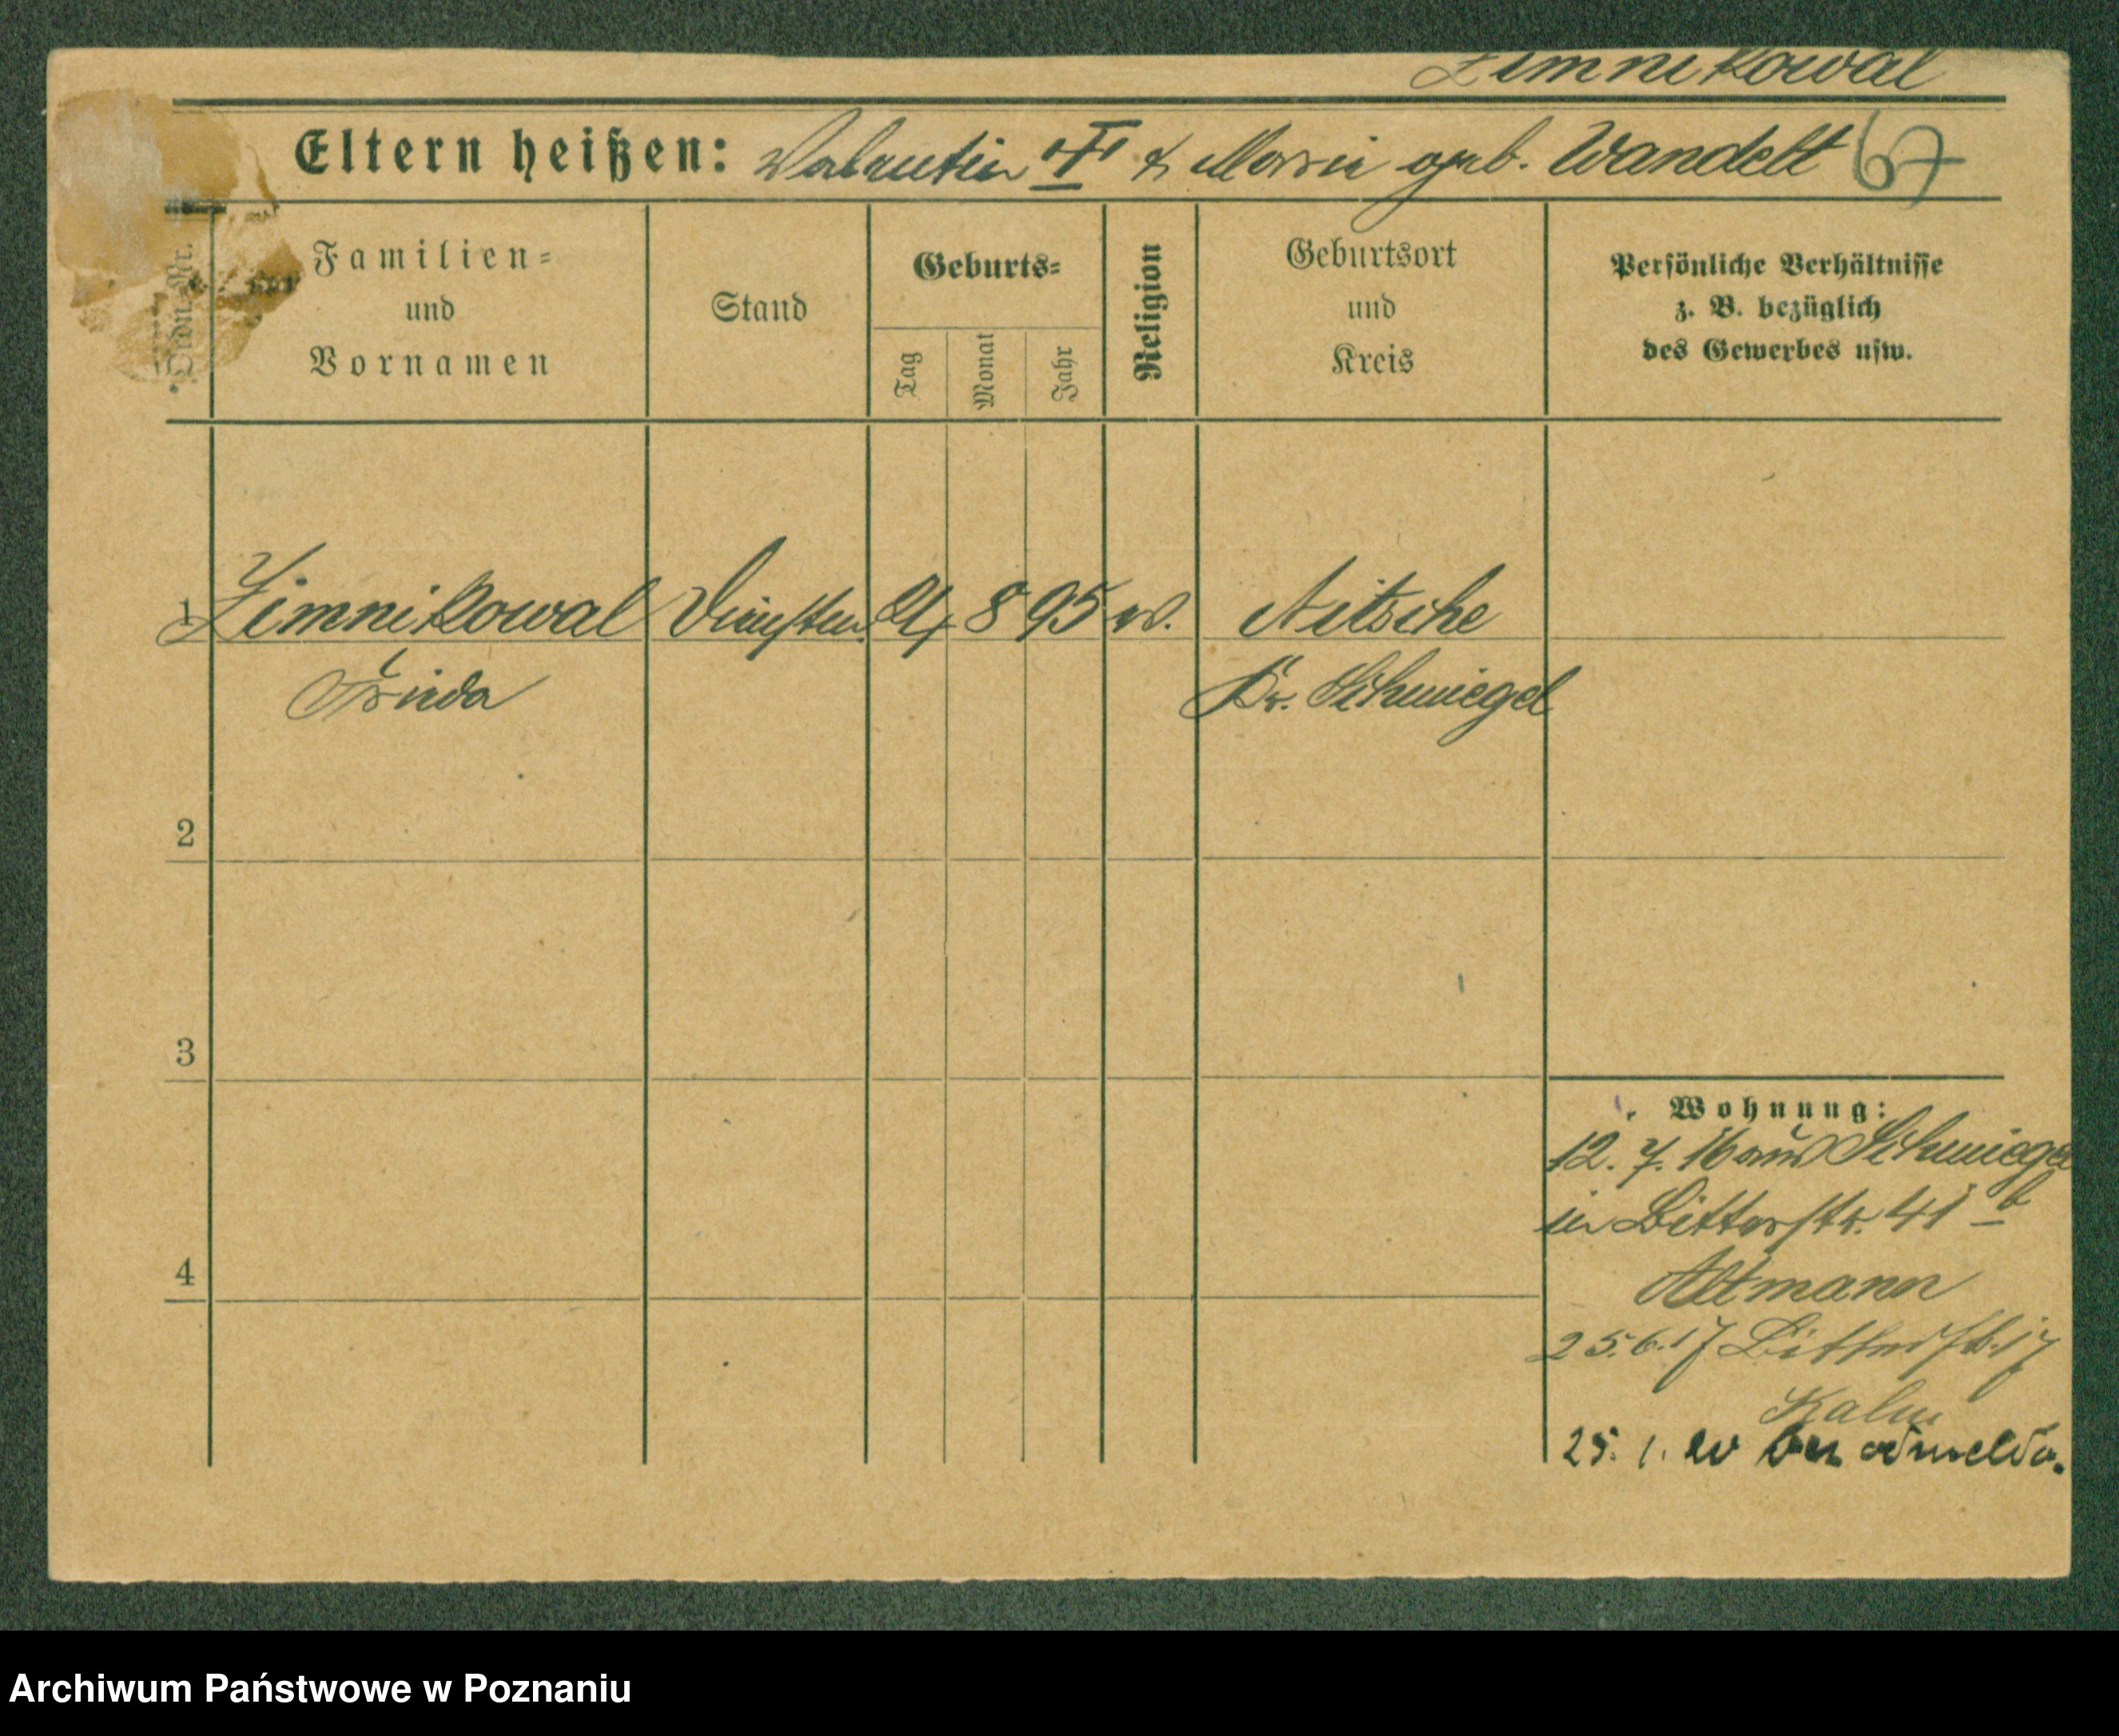 Zimnikowal
Eltern heißen: Valentin † & Marie geb. Wandelt 67
Ordn.-Nr.
Familien=
und
Vornamen
Stand
Geburts=
Tag
Monat
Jahr
Religion
Geburtsort
und
Kreis
Persönliche Verhältnisse
z. B. bezüglich
des Gewerbes usw.
1 Zimnikowal 24 8 95 Nitsche
Frieda Kr. Schmiegel
2
3
4
Wohnung:
12. 7. 16 aus Schmiegel
in Bitterstr. 41 b
Altmann
25.6.17 Bitterstr. 17
25. 1.
Archiwum Państwowe w Poznaniu